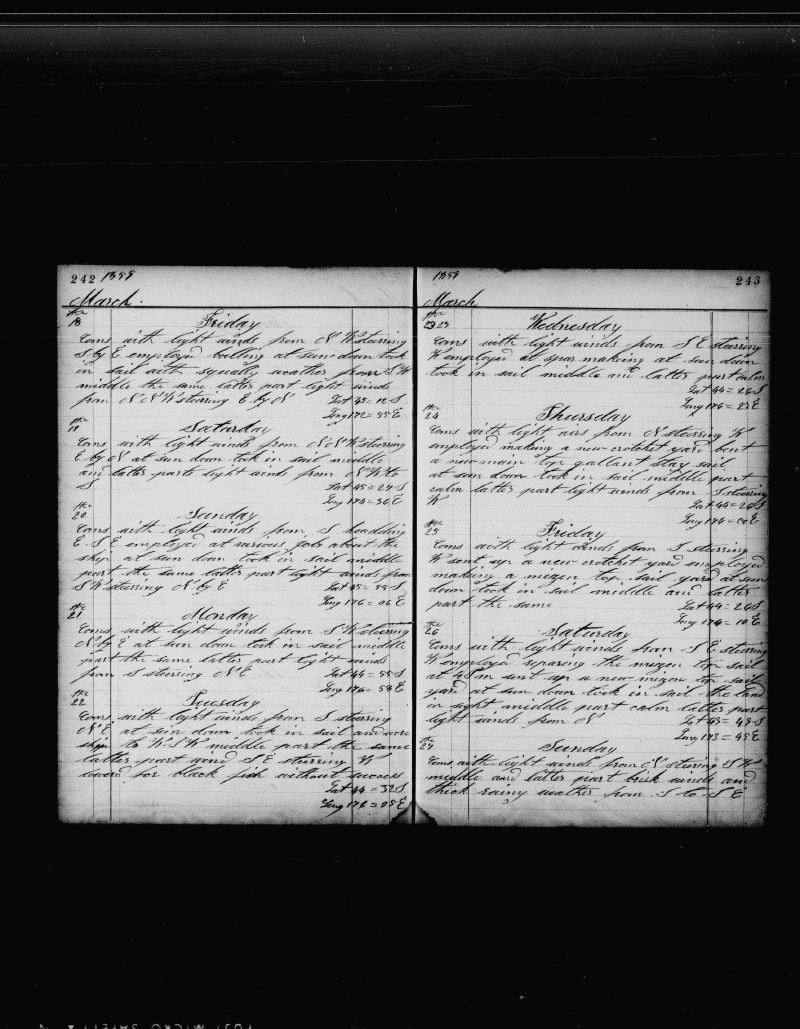 242 1859
March.
the
18 Friday
Coms with light winds from N W steering
S by E employed boiling at sun down took
in sail with squally weather from S W
middle the same latter part light winds
from N N W steering E by N Lat 45=12 S
Long 172=55 E
the
19 Saturday
Coms with light winds from N N W steering
E by N at sun down took in sail middle
and latter parts light winds from N W to
S Lat 45=27 S
Long 174=36 E
the
20 Sunday
Coms with light winds from S headding
E S E employed at various jobs about the
ship at sun down took in sail middle
part the same latter part light winds from
S W steering N by E Lat 45=55 S
Long 176=06 E
the
21 Monday
Coms with light winds from S W steering
N by E at sun down took in sail middle
part the same latter part light winds
from S steering N E Lat 44=55 S
Long 176=58 E
the
22 Tuesday
Coms with light winds from S steering
N E at sun down took in sail and wore
ship to W S W middle part the same
latter part wind S E steering W
lowered for black fish without success
Lat 44=32 S
Long 176=05 E
1859 243
March
the
23 23 Wednesday
Coms with light winds from S E steering
W employed at spar makeing at sun down
took in sail middle and latter part calm
Lat 44=26 S
Long 176=23 E
the
24 Thursday
Coms with light airs from N steering W
employed making a new crotchet yard bent
a new main top gallant stay sail
at sun down took in sail middle part
calm latter part light winds from S steering
W Lat 44=26 S
Long 176=00 E
the
25 Friday
Coms with light winds from S steering
W sent up a new crotchet yard employed
making a mizen top sail yard at sun
down took in sail middle and latter
part the same Lat 44=26 S
Long 174=10 E
the
26 Saturday
Coms with light winds from S E steering
W employed reparing the mizen top sail
at 4 P m sent up a new mizen top sail
yard at sun down took in sail the land
in sight middle part calm latter part
light winds from N Lat 43=49 S
Long 173=45 E
the
27 Sunday
Coms with light winds from N steering S W
middle and latter part brisk winds and
thick rainy weather from S to S E